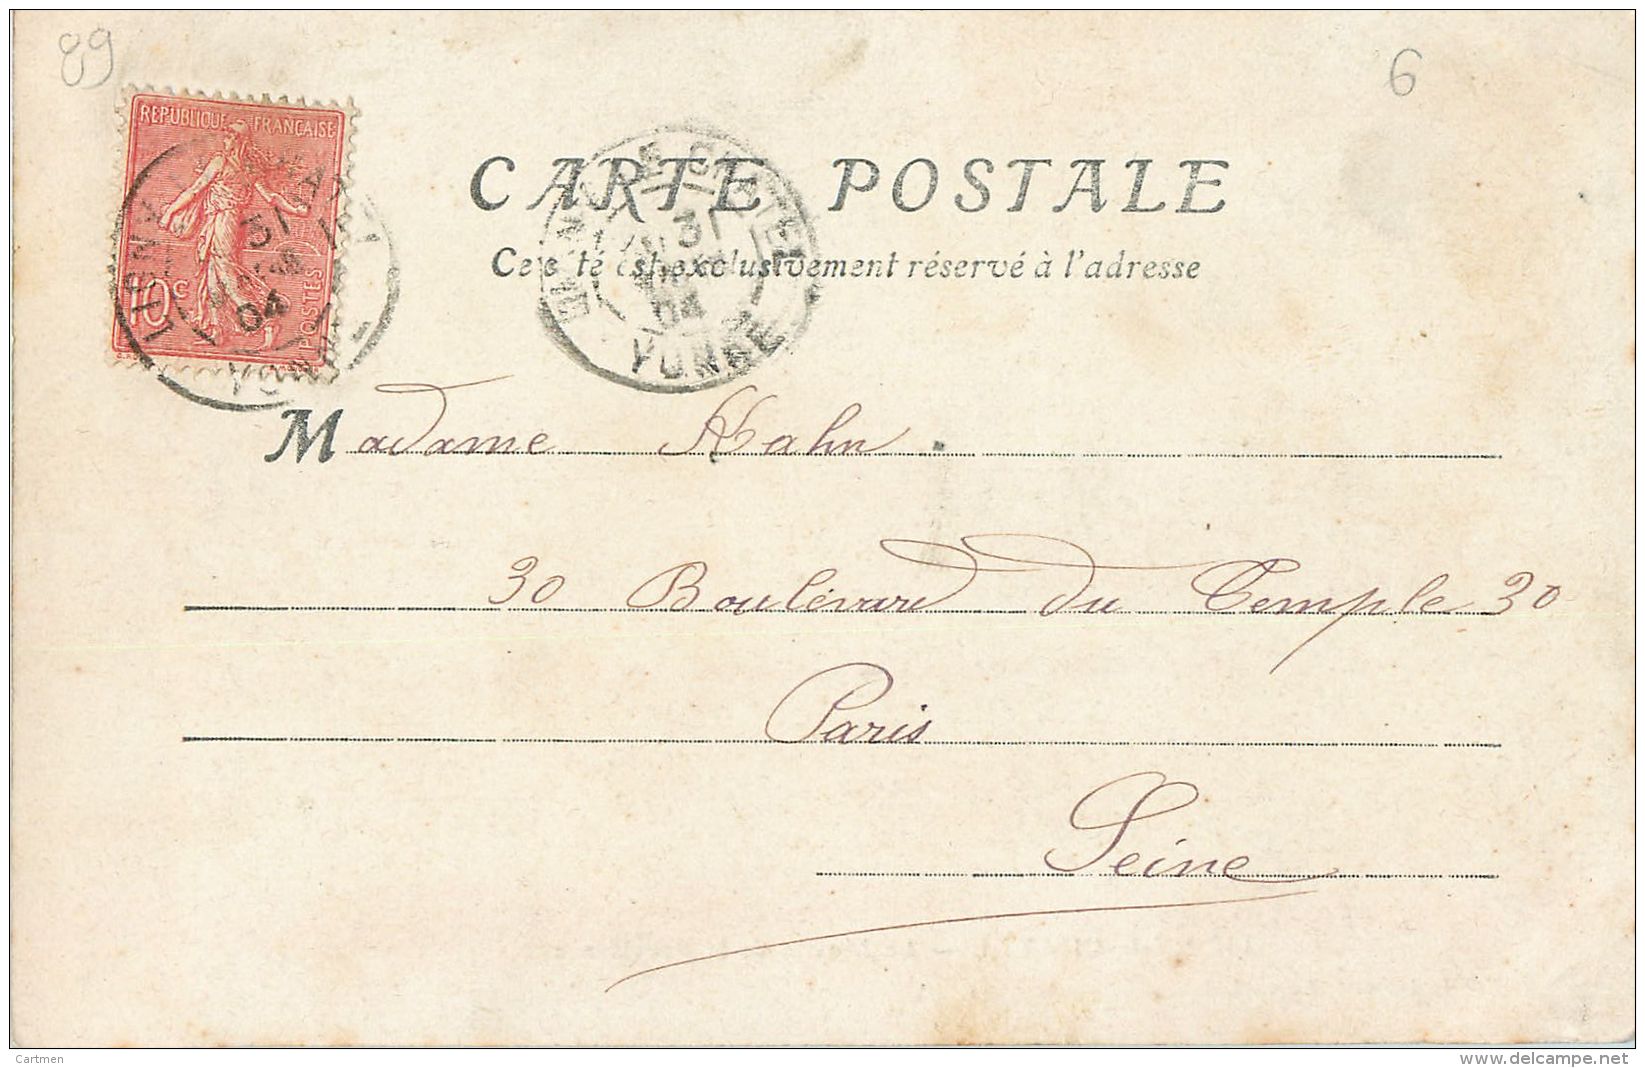 89
6
REPUBLIQUE FRANCAISE
10c
POSTES
31
04
CARTE POSTALE
Ce côté est exclusivement réservé à l'adresse
31
04
YONNE
Madame Kahn
30 Boulevard du Temple 30
Paris
Seine
Cartmen
www.delcampe.net